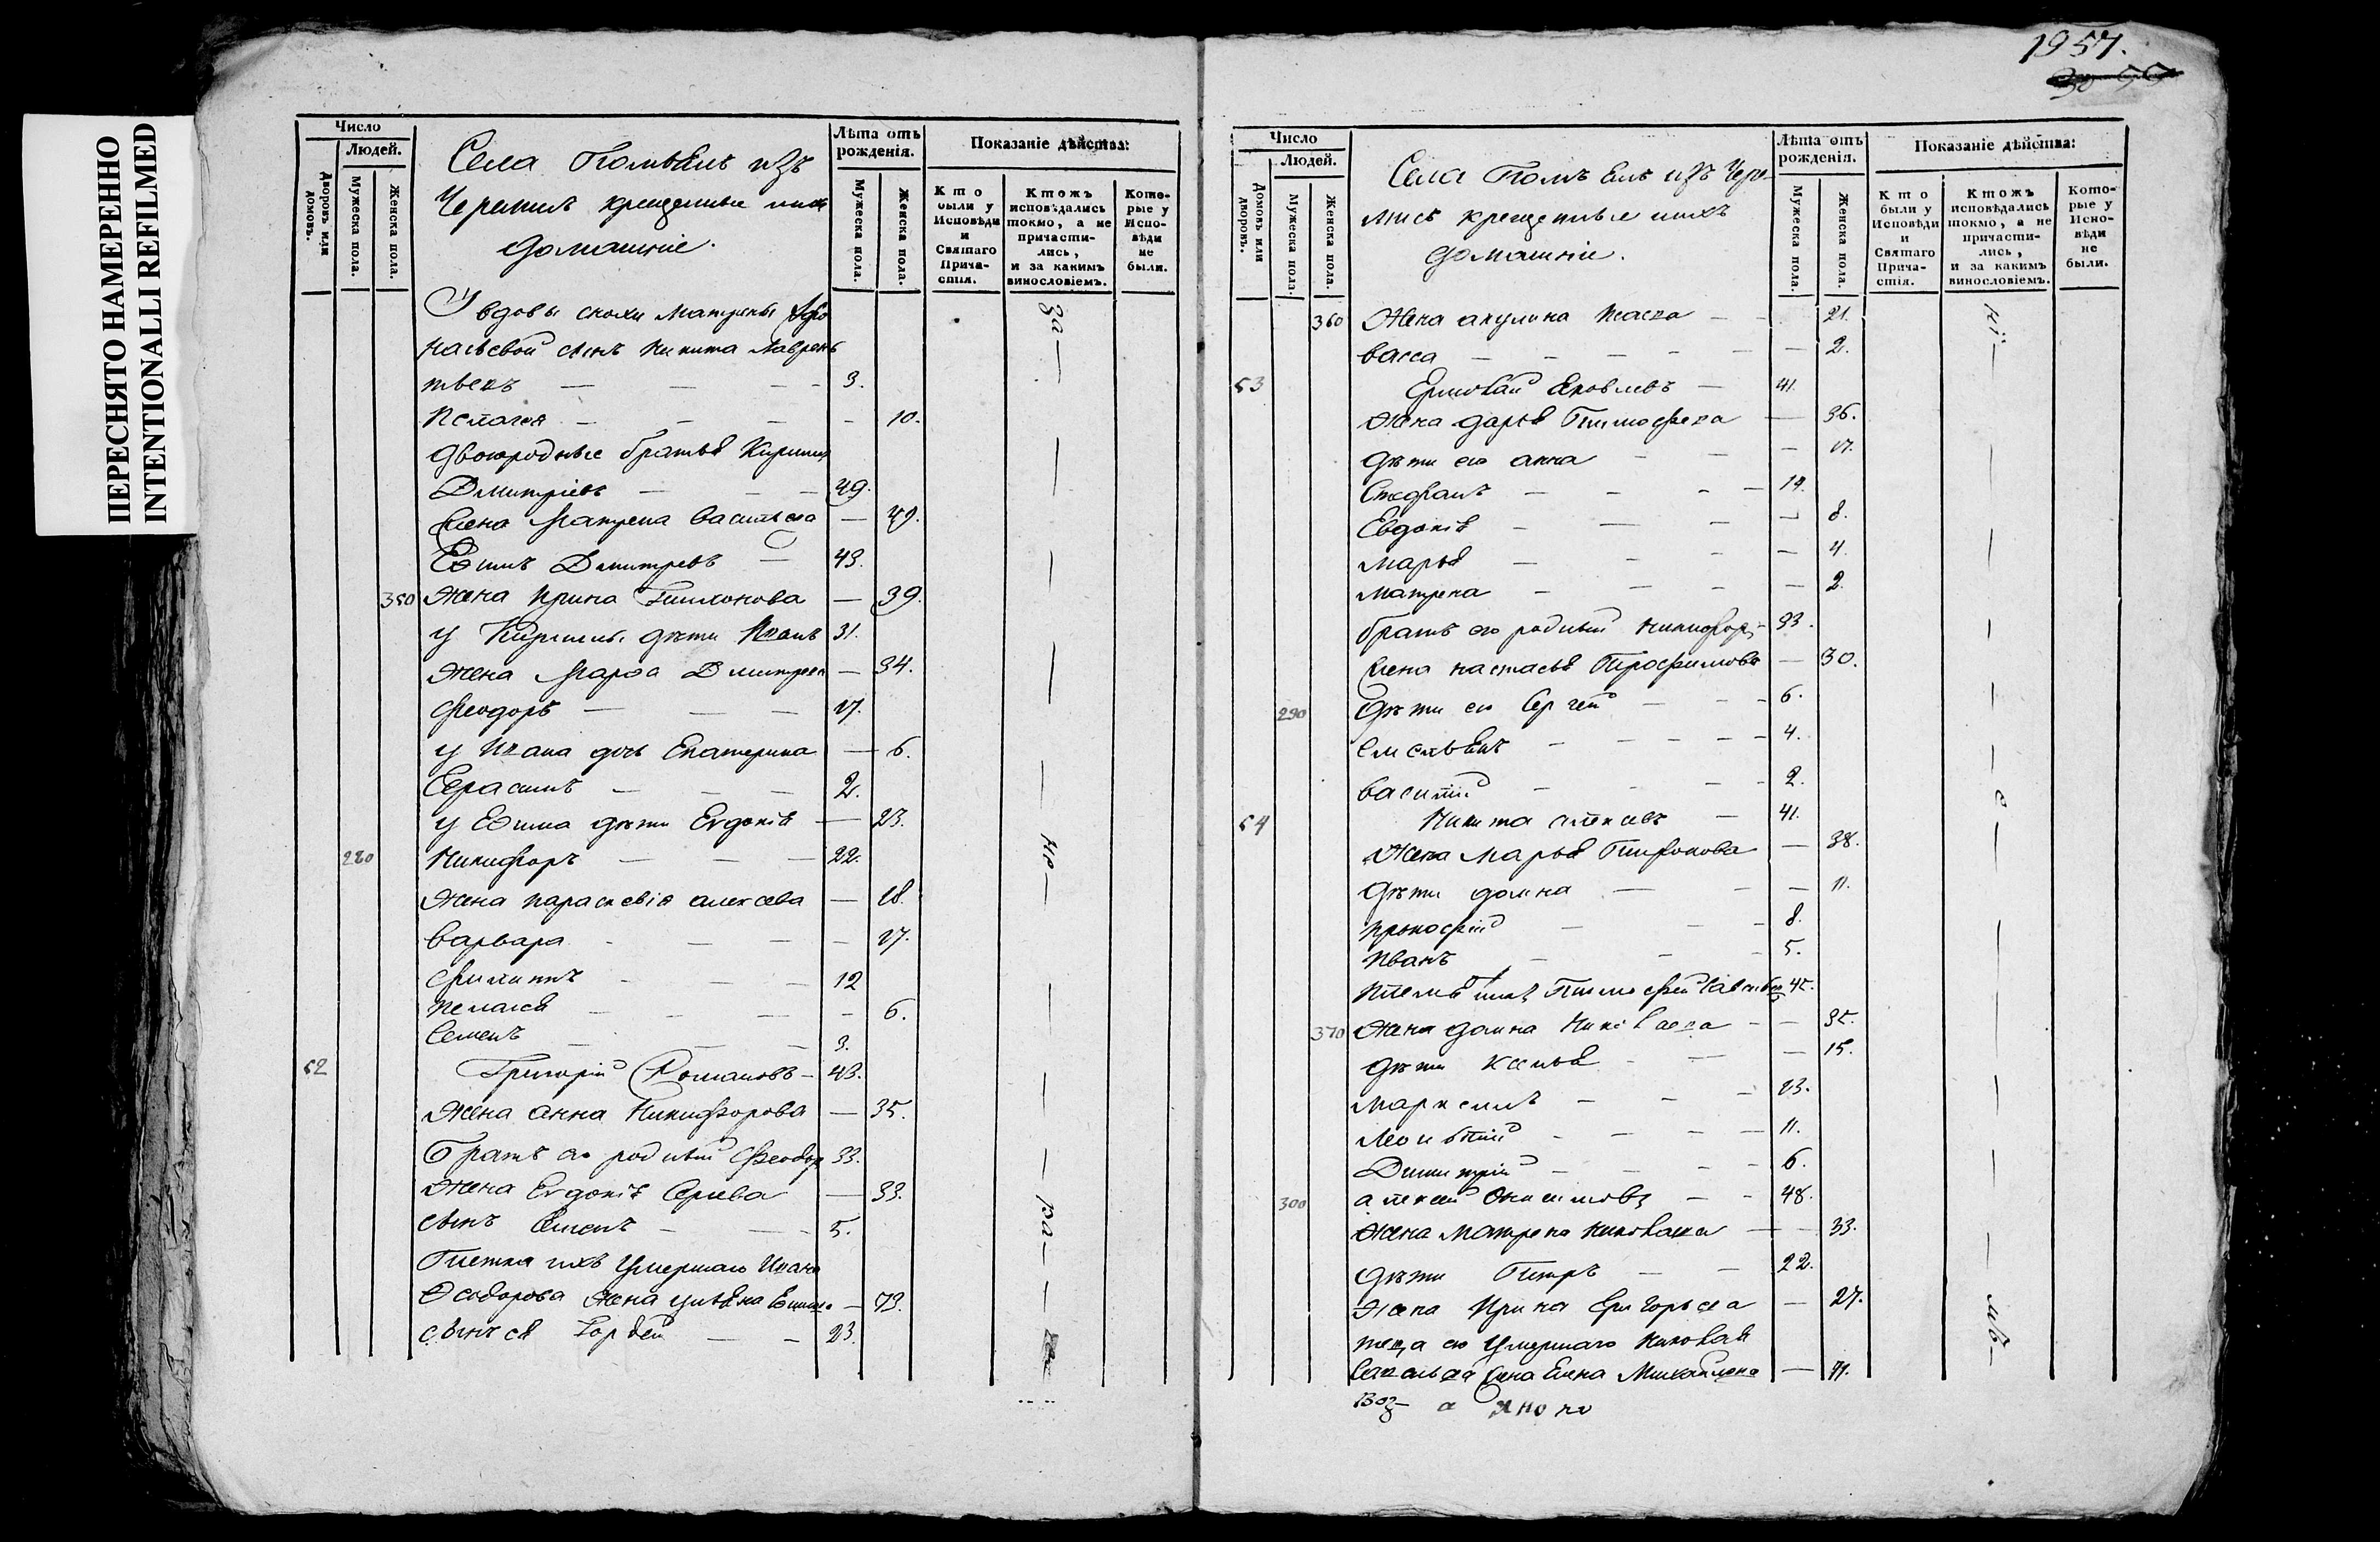 ПЕРЕСНЯТО НАМЕРЕННО
INTENTIONALLI REFILMED
1957.
Число
Людей.
Дворовъ или домовъ.
Мужеска пола.
Женска пола.
Села изъ
крещеные
домашніе.
Лѣта отъ рожденія.
Мужеска пола.
Женска пола.
Показаніе дѣйства:
Кто были у Исповѣди и Святаго Прича-стія.
Ктожъ исповѣдались токмо, а не причасти-лись, и за какимъ винословіемъ.
Кото-рые у Испо-вѣди не были.
вдовы снохи Матрены
сынъ Никита Лаврень
тьевъ — 3.
Пелагея — 10.
Двоюродные братья Кирилъ
Дмитріевъ — 49.
Жена Матрена Васильева — 49.
Еѳимъ Дмитревъ — 43.
350 Жена Ирина — 39.
у Кирилы дѣти Иванъ 31.
Жена Марѳа Дмитрева — 34.
Феодоръ — 17.
у Ивана дочь Екатерина — 6.
Герасимъ — 2.
у Еѳима дѣти Евдокія — 23.
280 Никифоръ — 22.
Жена Параскевія Алексева — 18.
Варвара — 17.
Филипъ — 12
Пелагея — 6.
Семенъ — 3.
52 Григорій Романовъ — 43.
Жена Анна Никифорова — 35.
Братъ его родный Феодоръ 33.
Жена Евдокія — 33.
сынъ Семенъ — 5.
Тетка ихъ умершаго Ивана
Ѳеодорова жена Ульяна — 73.
сынъ ея Гордей — 23.
Число
Людей.
Домовъ или дворовъ.
Мужеска пола.
Женска пола.
Села изъ Чере-
мисъ крещеные ихъ
домашніе.
Лѣта отъ рожденія.
Мужеска пола.
Женска пола.
Показаніе дѣйства:
Кто были у Исповѣди и Святаго Прича-стія.
Ктожъ исповѣдались токмо, а не причасти-лись, и за какимъ винословіемъ.
Кото-рые у Испо-вѣди не были.
360 Жена Акулина — 21.
Васса — 2.
53 Ермолай Яковлевъ — 41.
Жена Дарья Тимофеева — 36.
Дѣти его Анна — 17.
Стефанъ — 14.
Евдокія — 8.
Марья — 4.
Матрена — 2.
братъ его родный Никифоръ 33.
Жена Настасья Трофимова — 30.
290 Дѣти его Сергей — 6.
Емельянъ — 4.
Василій — 2.
54 Никита Алексевъ — 41.
Жена Марья — 38.
Дѣти Домна — 11.
Прокофій — 8.
Иванъ — 5.
Тимофей 45.
370 Жена Домна Николаева — 35.
Дѣти Ксенья — 15.
Маркелъ — 13.
Леонтій — 11.
Димитрій — 6.
300 Алексей Онисимовъ — 48.
Жена Матрена Николаева — 33.
Дѣти Петръ — 22.
Жена Ирина Григорьева — 27.
теща его умершаго Николая
Савельева жена Елена Михайлова — 71.